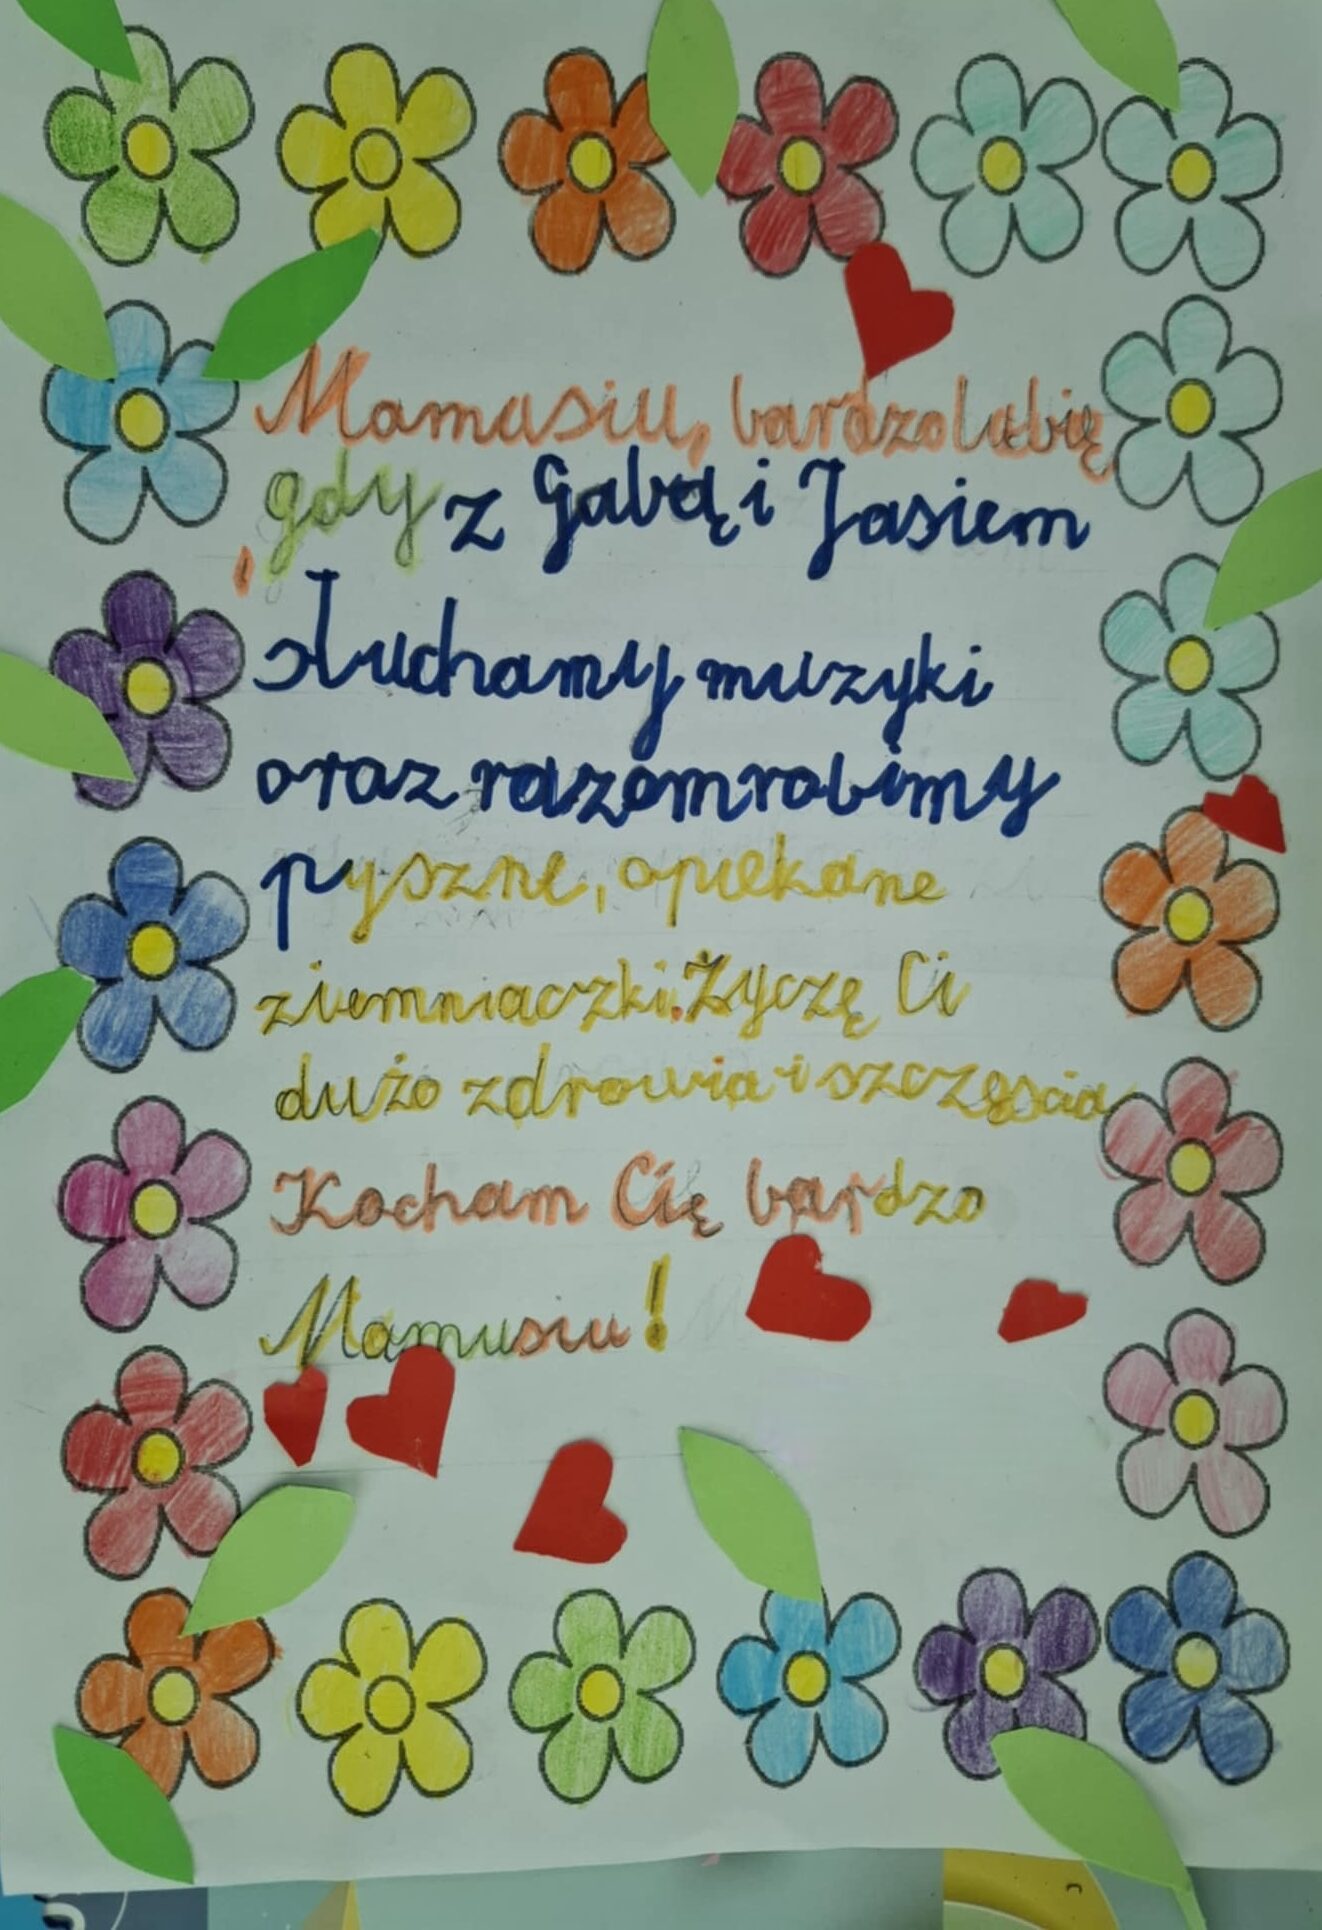 Mamusiu, bardzo lubię
, gdy z Gabą i Jasiem
słuchamy muzyki
oraz razem robimy
pyszne, opiekane
ziemniaczki. Życzę Ci
dużo zdrowia i szczęścia
Kocham Cię bardzo
Mamusiu!